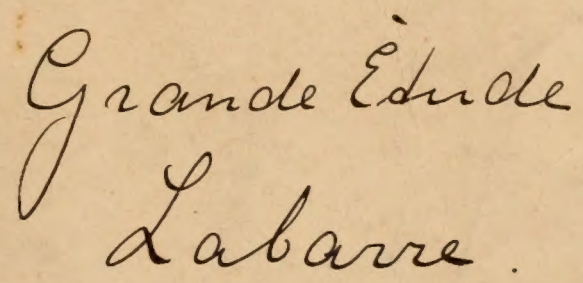 Grande Ètude
Labarre.